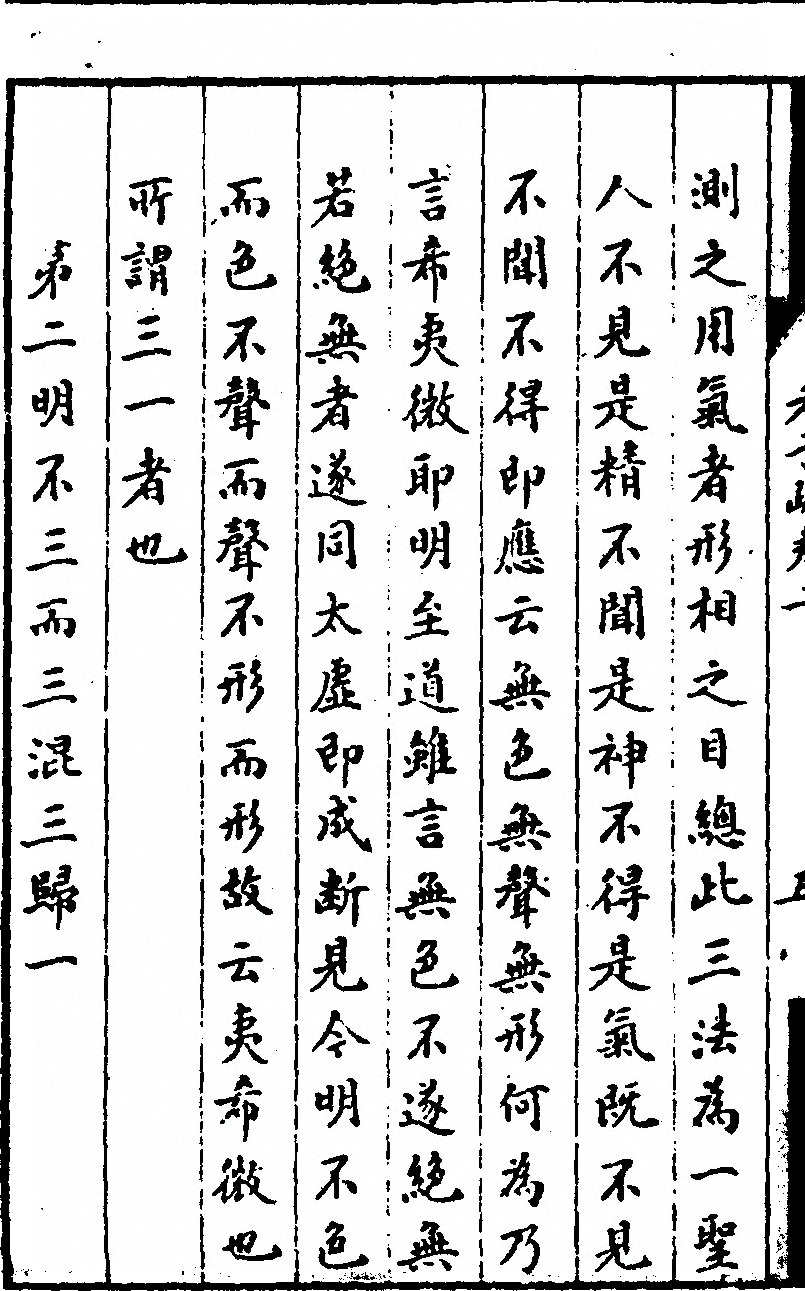 測之用氣者形相之目總此三法為一聖
人不見是精不聞是神不得是氣既不見
不聞不得即應云無色無聲無形何為乃
言希夷微耶明至道雖言無色不遂絕無
若絕無者遂同太虛即成斷見今明不色
而色不聲而聲不形而形故云夷希微也
所謂三一者也
第二明不三而三混三歸一